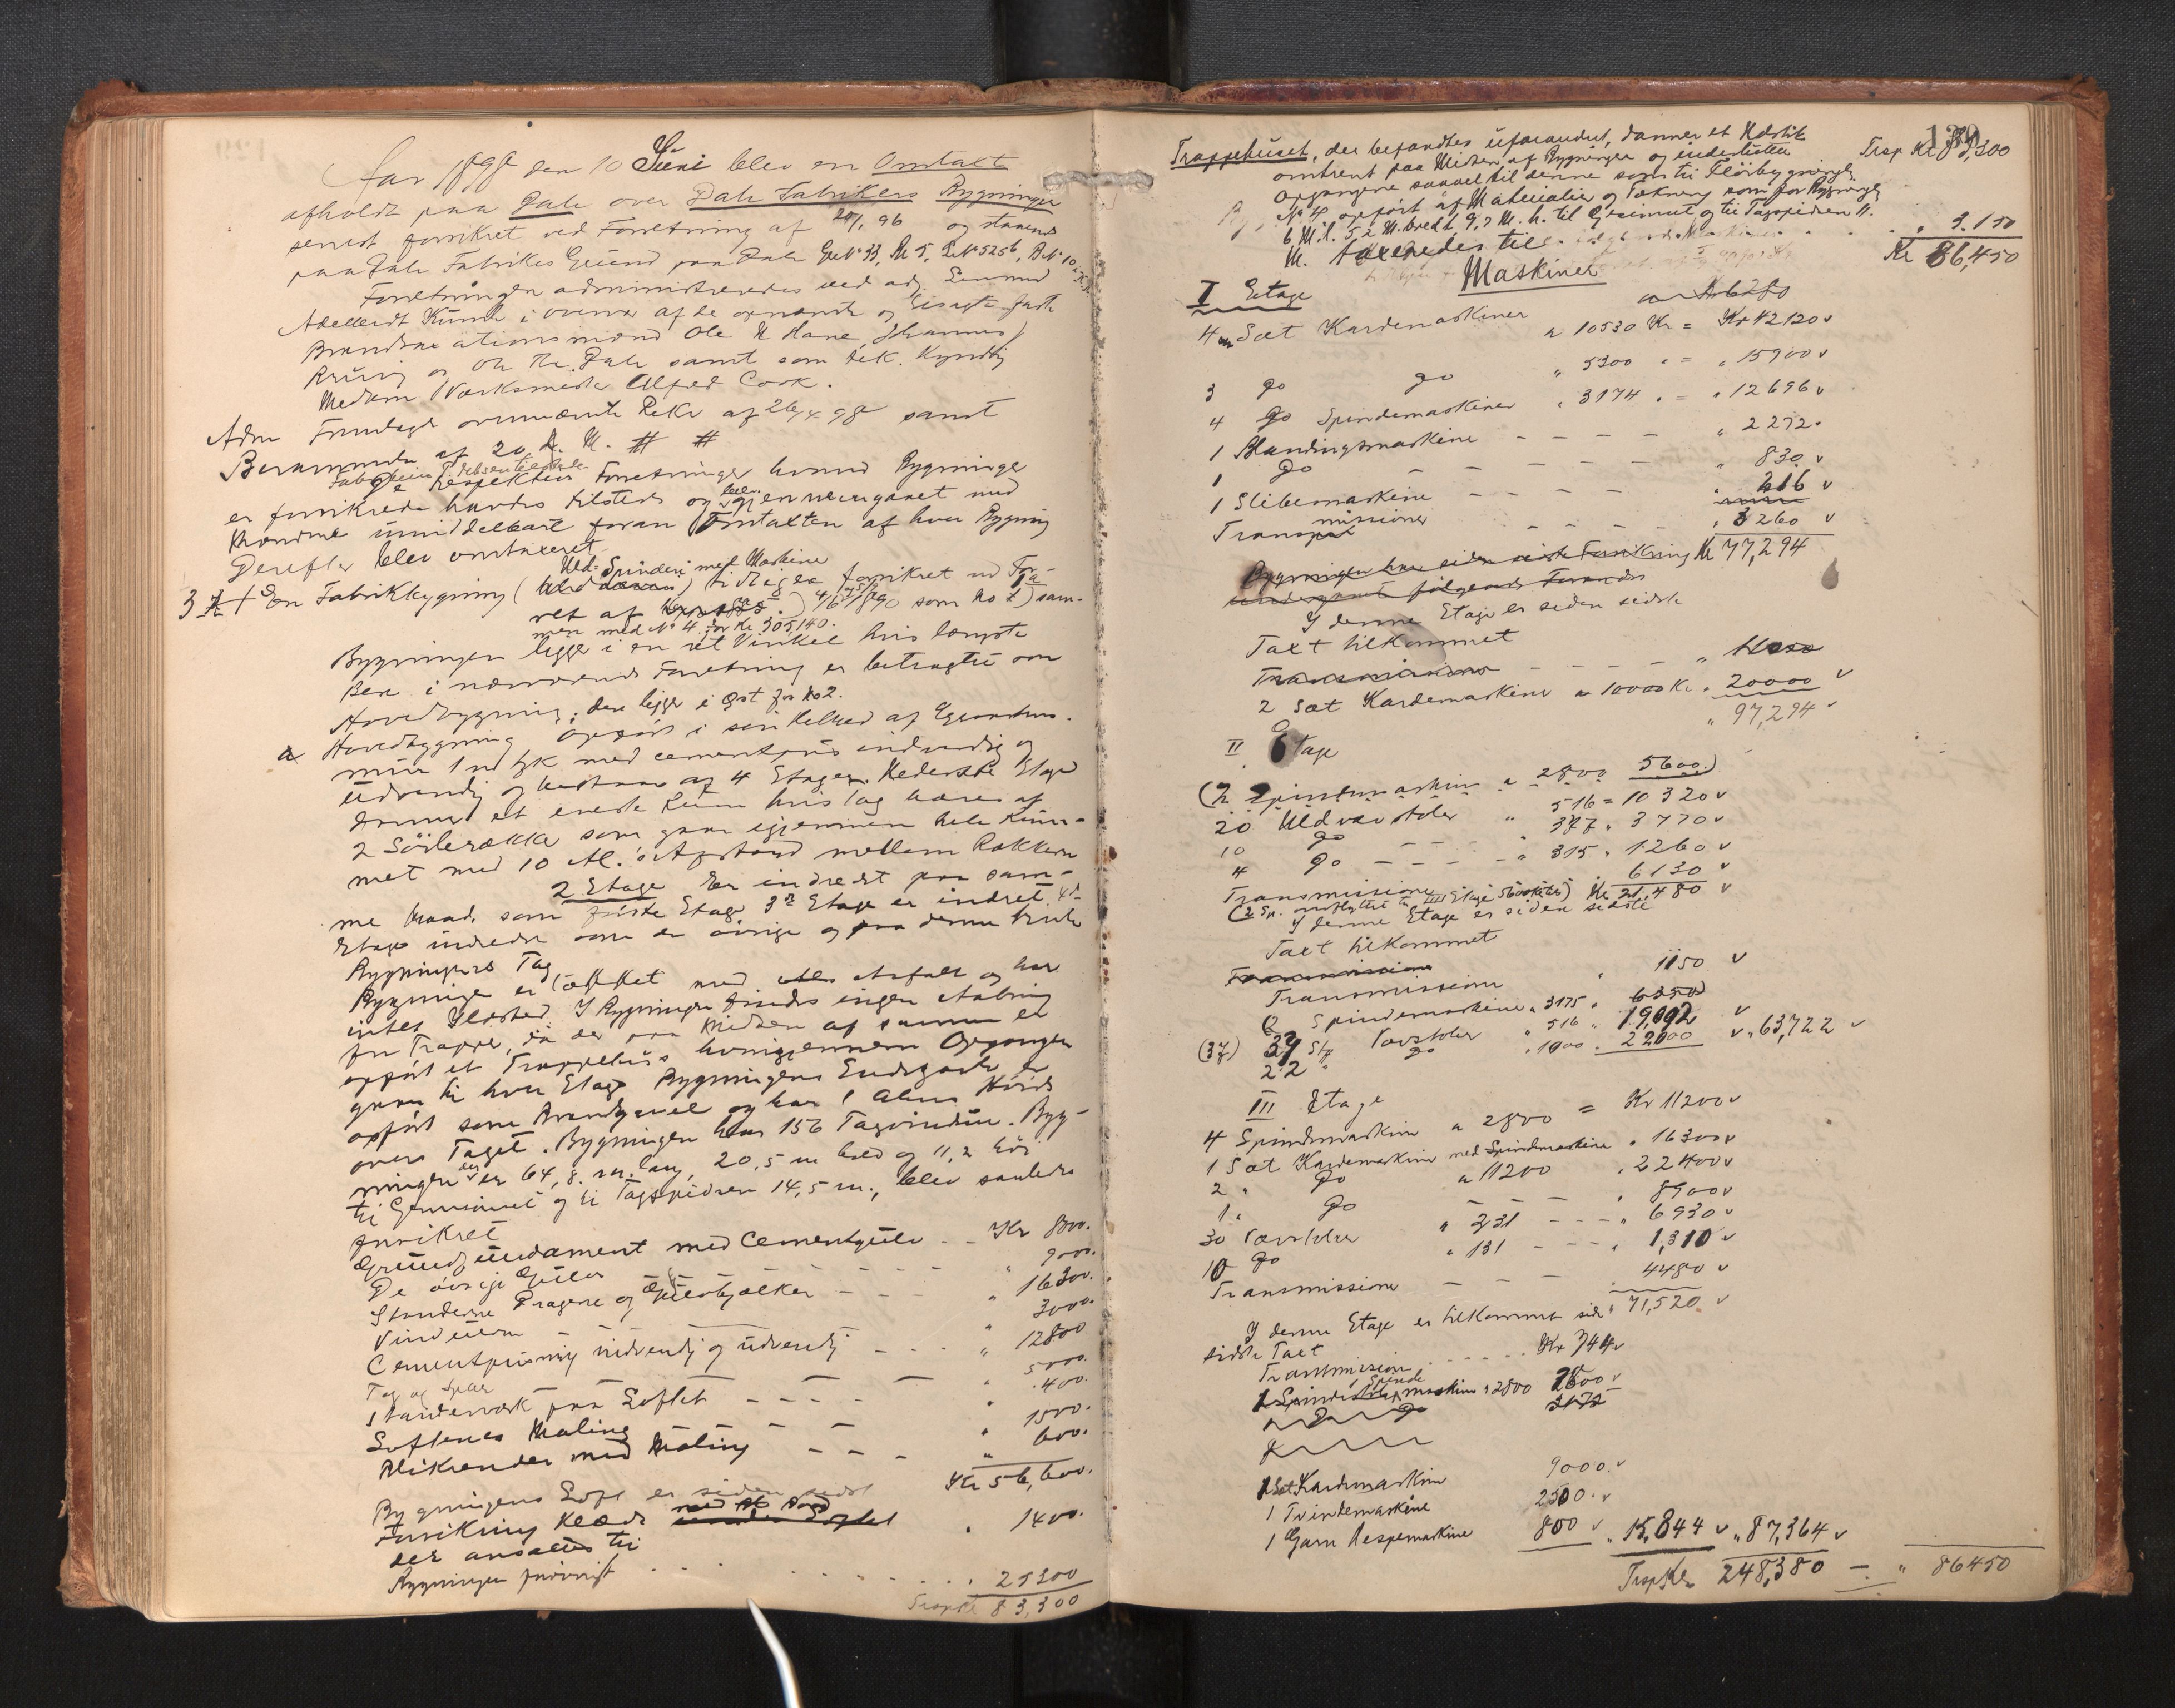 Aar 1898 den 10 Juni blev en Omtaxt
afholdt paa Dale over Dale Fabrikers Bygninger
senest forsikret ved Forretning af 20/1 96 og staaende
paa Dale Fabrikes Grund paa Dale GNo 33, BNo 5,
Forretningen administreredes ved
i overvær af de opnævnte og Eisagte faste
Brandtaxationsmænd Ole N Hane, Johannes
og Ole Dale samt som tek. Kyndig
Medlem Værksmester Alfred Cook.
Adm fremlagde ovennævnte Rekv af 26/4 98 samt
Berammelse af 20 d. M. # #
De respektive Forretninger hvorved Bygninger
er forsikrede havdes tilstede og blev gjennemgaaet med
Mændene umiddelbart foran Omtaxten af hver Bygning
Derefter blev omtaxeret
Uld-Spinderi med Maskine
3 En Fabrikbygning ( ) tidligere forsikret ved For-
ret af 4/6 1890 som No 2) sam-
men med No 4 for Kr 305,140.
Bygningen ligger i en ret Vinkel hvis længste
Ben i nærværende Forretning er betragtet som
Hovedbygning; den ligger i Øst for No 2.
a Hovedbygning opført i sin Helhed af
mur 1 med cementpuds indvendig og
udvendig og bestaar af 4 Etager. Nederste Etage
danner et eneste Rum hvis Tag bæres af
2 Söilerække som gaar igjennem hele Rum-
met med 10 Al. Afstand mellem Rækkern
2 Etage er indredet paa sam-
me Maade som første Etage 3die Etage er indret. 4de
Etage indredet som de övrige og paa denne hviler
Bygningens Tag
Bygningen er tækket med Asfalt og har
intet Ildsted. I Bygningen findes ingen Aabning
for Trappe, da der paa Midten af samme er
opført et Trappehus hvorigjennem Opgangen
gaar til hver Etage Bygningens Endegavle er
opført som Brandgavel og har 1 Alens Høide
over Taget. Bygningen har 156 Tagvinduer. Byg-
ningen der er 64,8 m. lang, 20,5 m bred og 11,2 höi
til Gesimset og til Tagspidsen 14,5 m., blev saaledes
forsikret
Grundfundament med Cementgulv - - Kr 800.
De övrige Gulve " 9000.
Stenderne Dragere og Gulvbjælker - - - " 16300.
Vinduerne " 3000.
Cementpudsning indvendig og udvendig - - - " 12800
Tag og Spær - - - 5000.
Standerværk paa Loftet - - - - " 400.
Loftenes Maling - - - " 1500.
Blikrender med Maling - - - " 600.
Kr 56,600.
Bygningens Loft er siden sidst
Forsikring klædt
der ansattes til " 1400.
Bygningen forövrigt . . . . . . 25300
Transp Kr 83,300
139
Trappehuset, der befandtes uforandret, danner et Udstik Trsp Kr 83,300
omtrent paa Midten af Bygningen og indeslutter
Opgangene saavel til denne som til Flöibygningen
No 4, opført af Materialier og Tækning som for Bygningen
6 M. l. 5,2 M. bredt 9,7 M. h. til Gesimset og til Tagspidsen 11.
M. taxeredes til . . . . " 3.150
Kr 86,450
Maskiner
I Etage
4 Sæt Kardemaskiner a 10530 Kr = Kr 42120 v
3 do do " 5300 " = " 15900 v
4 do Spindemaskiner " 3174 " = " 12696 v
1 Blandingsmaskine - - - - " 2272.
1 do - - - - " 830. v
1 Slibemaskine - - - - " 216 v
Transmissioner - - - - " 3260 v
Kr 77,294
Bygningen har siden sidste Forsikring
undergaaet følgende Forandr
I denne Etage er siden sidste
Taxt tilkommet
Transmissioner - - - - "
2 Sæt Kardemaskine a 10000 Kr. " 20000 v
" 97,294 v
II Etage
(2 Spindemaskine a 2800 5600.)
20 Uldvævstoler " 516 = 10320 v
10 do " 377 " 3770 v
4 do - - - - " 315 " 1260 v
Transmissioner " 6130 v
(2 Sp. mskflyttet til III Etage) Kr 21,480 v
I denne Etage er siden sidste
Taxt tilkommet
Transmissione
Transmissione " 1150 v
2 Spindemaskine a 3175 " 6350
(37) 37 Stk Vævstoler " 516 " 19,092 v
22 " do " 1000 " 22000 v " 63,722 v
III Etage
4 Spindemaskine a 2800 = Kr 11200 v
1 Sæt Kardemaskine med Spindmaskine " 16300 v
2 " do a 11200 " 22400 v
1 " do - - - " 8900 v
30 Vævstoler " 231 - - - " 6930 v
10 do " 131 - - - " 1,310 v
Transmissione - - - " 4480 v
" 71,520 v
I denne Etage er tilkommet sid
sidste Taxt
Transmission . . . . . Kr 744 v
1 Spindemaskine a 2800 2800 v
do 3175
1 Sæt Kardemaskine 9000. v
1 Tvindemaskine 2500. v
1 Garn Hespemaskine 800 v " 15,844 v " 87,364 v
Trsp Kr 248,380 - " 86450